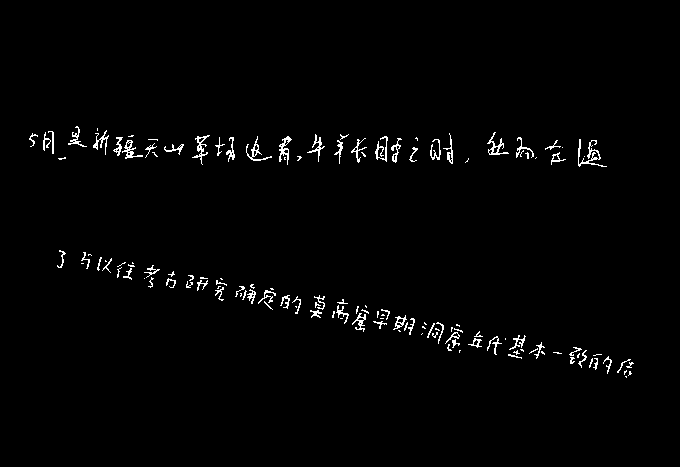 5月,是新疆天山草场返青,牛羊长膘之时,然而在温
了与以往考古研究确定的莫高窟早期洞窟年代基本一致的信